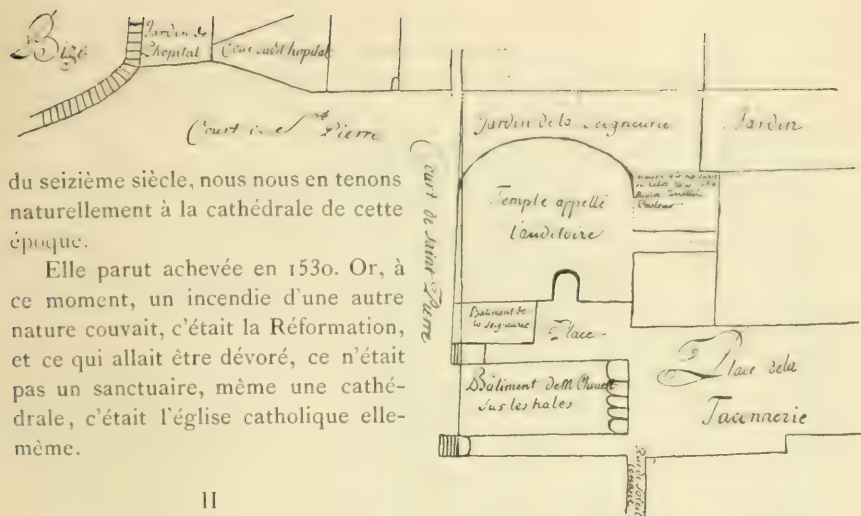 Jardin de
Lhopital
Cour dudit hopital
Court de St Pierre
Jardin de la Seigneurie
Jardin
Court de Saint Pierre
Temple appellé
l'auditoire
Batiment de
la Seigneurie
Place
Bâtiment de M Chouet
sur les hales
Place de la
Taconnerie
du seizième siècle, nous nous en tenons
naturellement à la cathédrale de cette
époque.
Elle parut achevée en 1530. Or, à
ce moment, un incendie d'une autre
nature couvait, c'était la Réformation,
et ce qui allait être dévoré, ce n'était
pas un sanctuaire, même une cathé-
drale, c'était l'église catholique elle-
même.
II